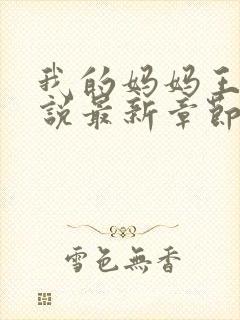 我的妈妈王
說最新章節
雪色無香